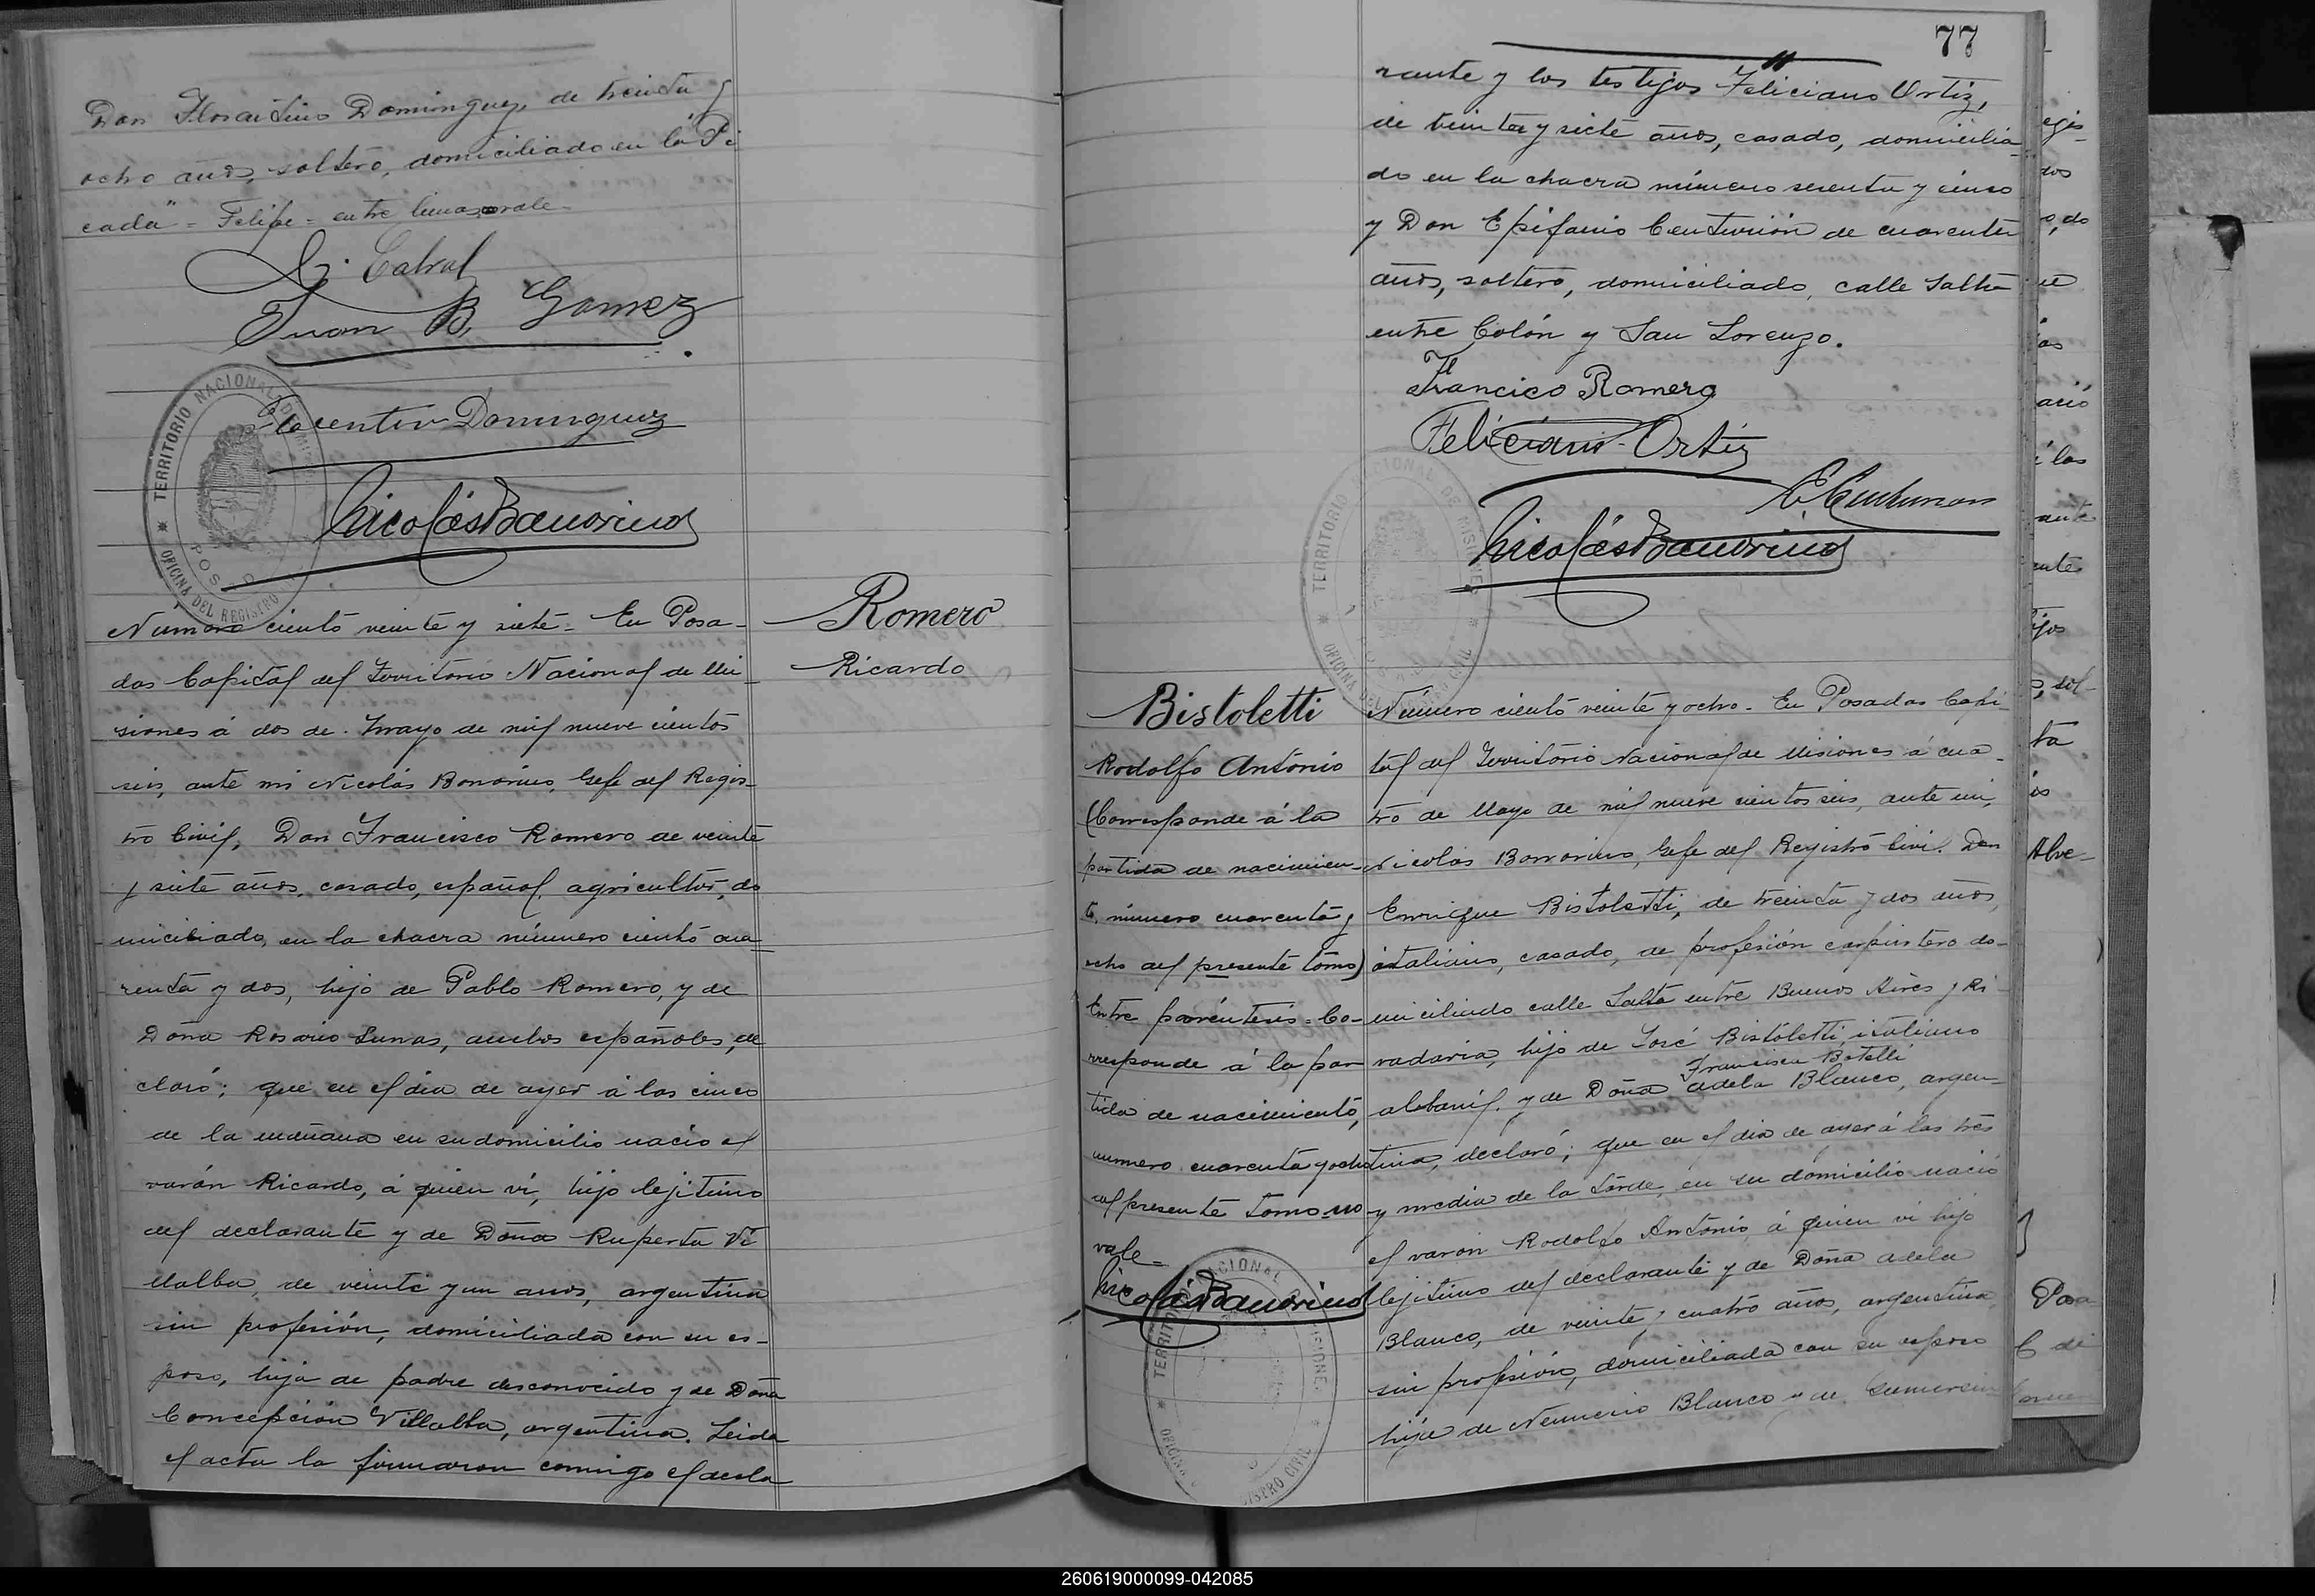 Don Florentino Dominguez, de treinta y
ocho años, soltero, domiciliado en la "Pi
cada" = Felipe = entre lineas vale
Cabral
Juan B. Gomez
Florentin Dominguez
Nicolás Bonorino
TERRITORIO NACIONAL DE MISIONES
POSADAS
OFICINA DEL REGISTRO
Numero ciento veinte y siete = En Posa-
das Capital del Territorio Nacional de Mi
siones á dos de Mayo de mil nueve cientos
seis, ante mi Nicolás Bonorino, Gefe del Regis-
tro Civil, Don Francisco Romero de veinte
y siete años, casado, español, agricultor, do
miciliado, en la chacra número ciento cua
renta y dos, hijo de Pablo Romero, y de
Doña Rosario Lunas, ambos españoles, de
claró; que en el dia de ayer á las cinco
de la mañana en su domicilio nació el
varón Ricardo, á quien vi, hijo lejitimo
del declarante y de Doña Ruperta Vi
llalba, de veinte y un años, argentina
sin profesión, domiciliada con su es-
poso, hija de padre desconocido y de Doña
Concepción Villalba, argentina. Leida
el acta la firmaron conmigo el decla
Romero
Ricardo
77
rante y los testigos Feliciano Ortiz,
de veinte y siete años, casado, domicilia
do en la chacra número sesenta y cinco
y Don Epifanio Centurión de cuarenta
años, soltero, domiciliado, calle Salta
entre Colón y San Lorenzo.
Francico Romero
Feliciano Ortiz
Nicolás Bonorino
TERRITORIO NACIONAL DE MISIONES
OFICINA DEL REGISTRO CIVIL
Bistoletti
Rodolfo Antonio
(Corresponde á la
partida de nacimien-
to, número cuarenta y
ocho del presente tomo)
Entre paréntesis = Co-
rresponde á la par
tida de nacimiento,
numero cuarenta y ocho
del presente tomo = no
vale =
Nicolás Bonorino
TERRITORIO NACIONAL DE MISIONES
OFICINA DEL REGISTRO CIVIL
Número ciento veinte y ocho = En Posadas Capi
tal del Territorio Nacional de Misiones á cua-
tro de Mayo de mil nueve cientos seis, ante mi,
Nicolás Bonorino, Gefe del Registro Civil. Don
Enrique Bistoletti, de treinta y dos años,
italiano, casado, de profesión carpintero do-
miciliado calle Salta entre Buenos Aires y Ri-
vadavia, hijo de José Bistoletti, italiano
Francisca Botelli
albañil, y de Doña Adela Blanco, argen-
tina, declaró; que en el dia de ayer á las tres
y media de la tarde, en su domicilio nació
el varon Rodolfo Antonio, á quien vi hijo
lejitimo del declarante y de Doña Adela
Blanco, de veinte y cuatro años, argentina,
sin profesión, domiciliada con su esposo
hija de Nemecio Blanco y de Gumersin
260619000099-042085